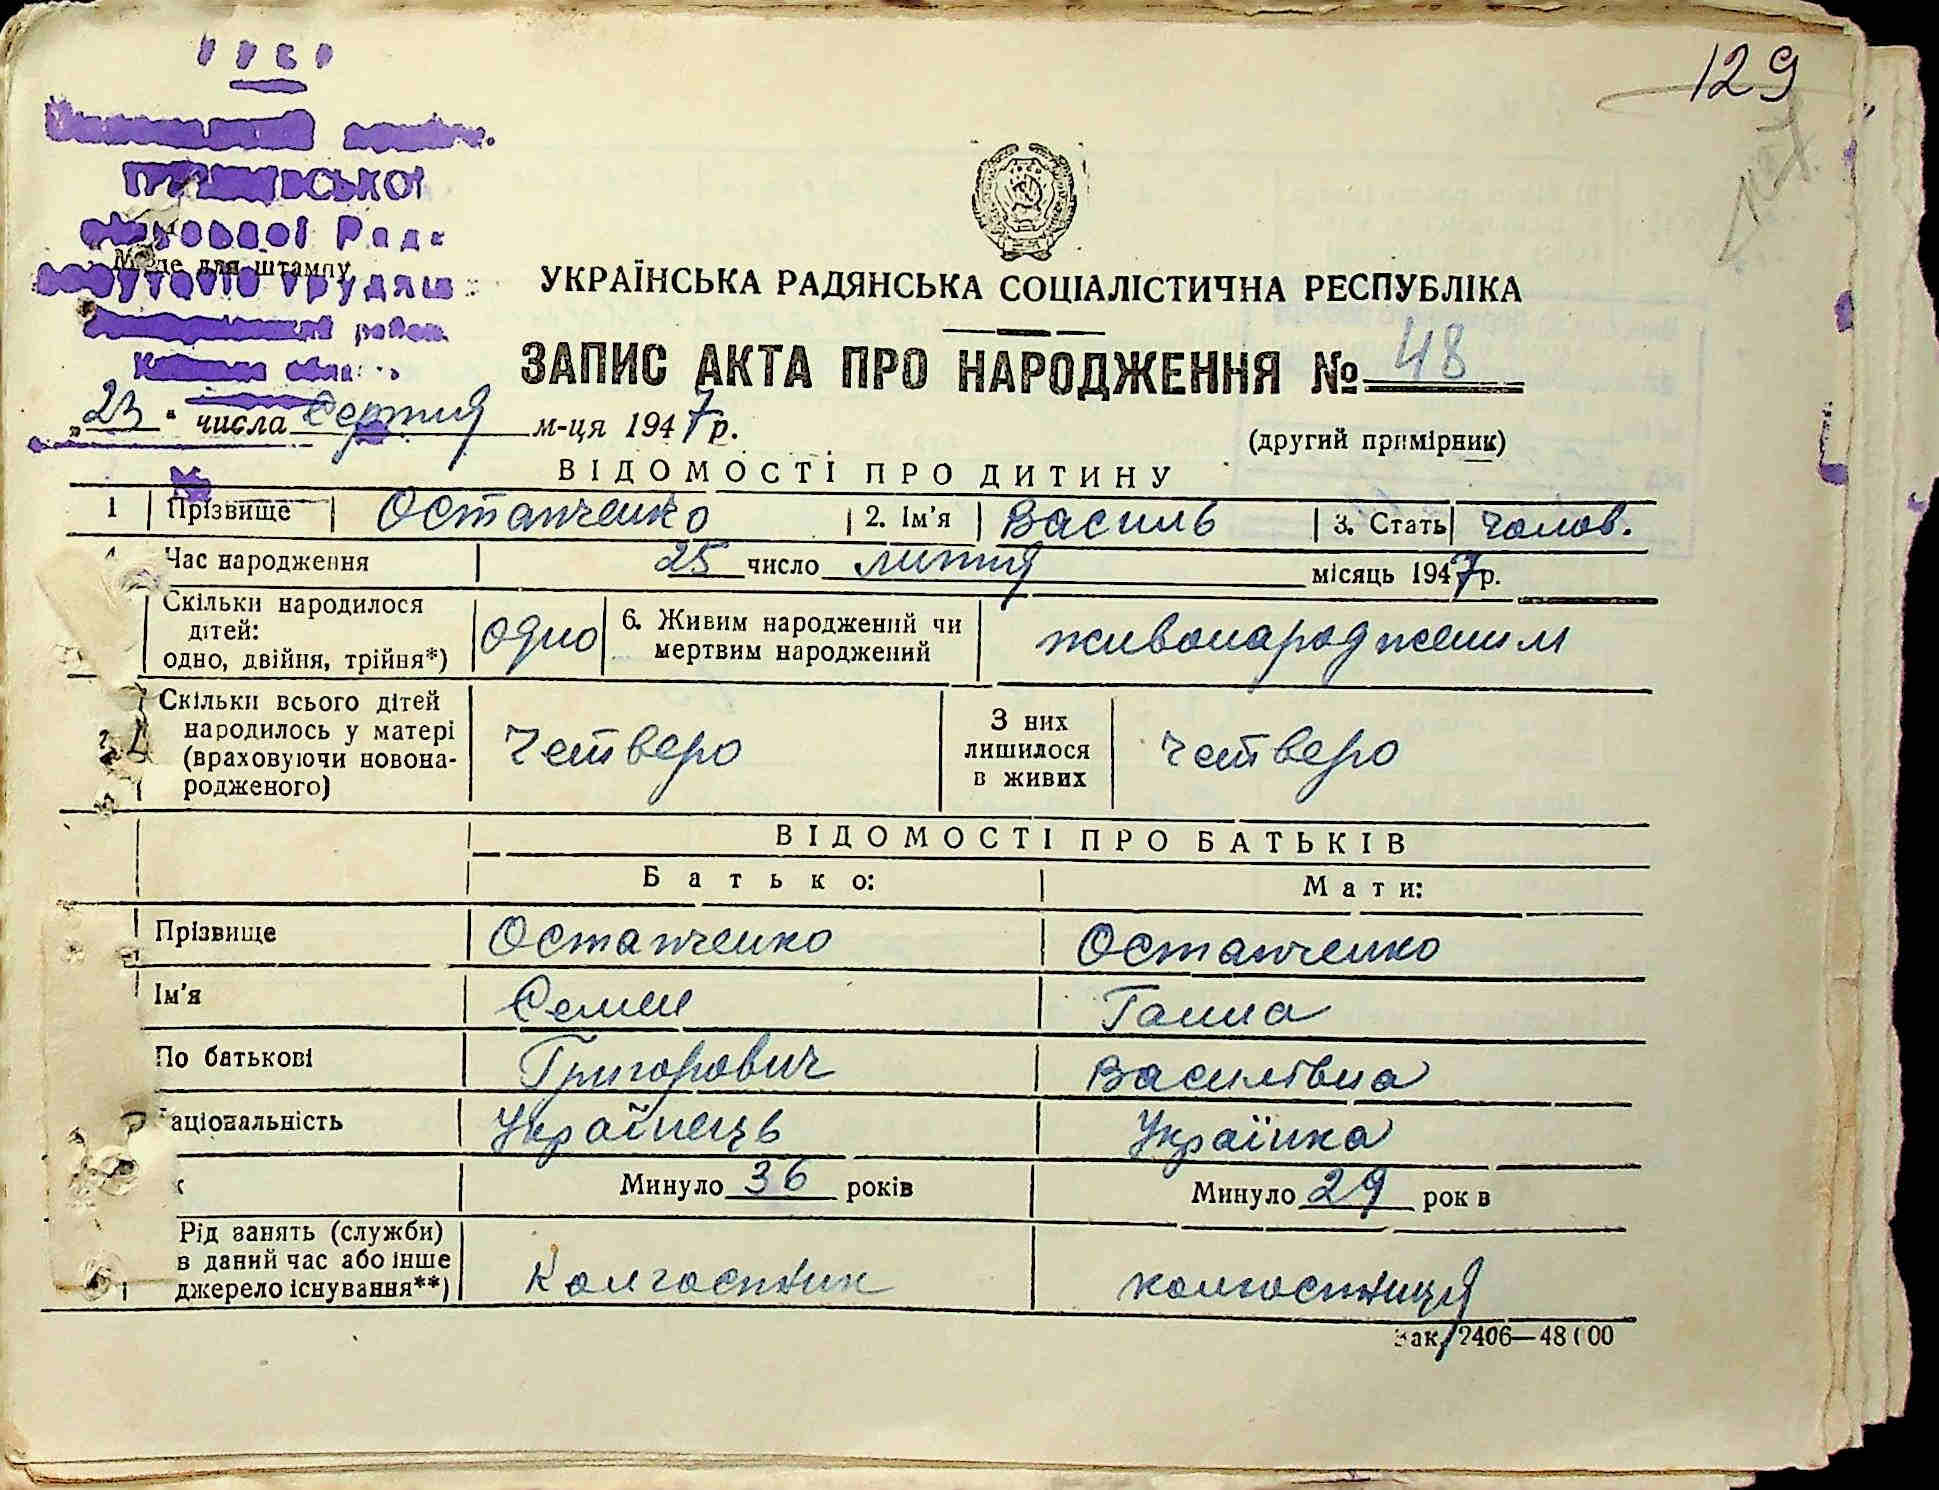 УРСР
129
№7.
ської
Рада
Місце для штампу
депутатів трудящ
район
УКРАЇНСЬКА РАДЯНСЬКА СОЦІАЛІСТИЧНА РЕСПУБЛІКА
ЗАПИС АКТА ПРО НАРОДЖЕННЯ № 48
„23“ числа Серпня м-ця 1947 р.
(другий примірник)
ВІДОМОСТІ ПРО ДИТИНУ
1 Прізвище Остапченко 2. Ім'я Василь 3. Стать чолов.
Час народження 25 число липня місяць 1947 р.
Скільки народилося дітей: одно, двійня, трійня*) одно 6. Живим народжений чи мертвим народжений живонародженим
Скільки всього дітей народилось у матері (враховуючи новонародженого) Четверо З них лишилося в живих четверо
ВІДОМОСТІ ПРО БАТЬКІВ
Батько: Мати:
Прізвище Остапченко Остапченко
Ім'я Семен Ганна
По батькові Григорович Василівна
аціональність Українець Українка
к Минуло 36 років Минуло 29 рок в
Рід занять (служби) в даний час або інше джерело існування**) Колгоспник колгоспниця
Зак. 2406—48000